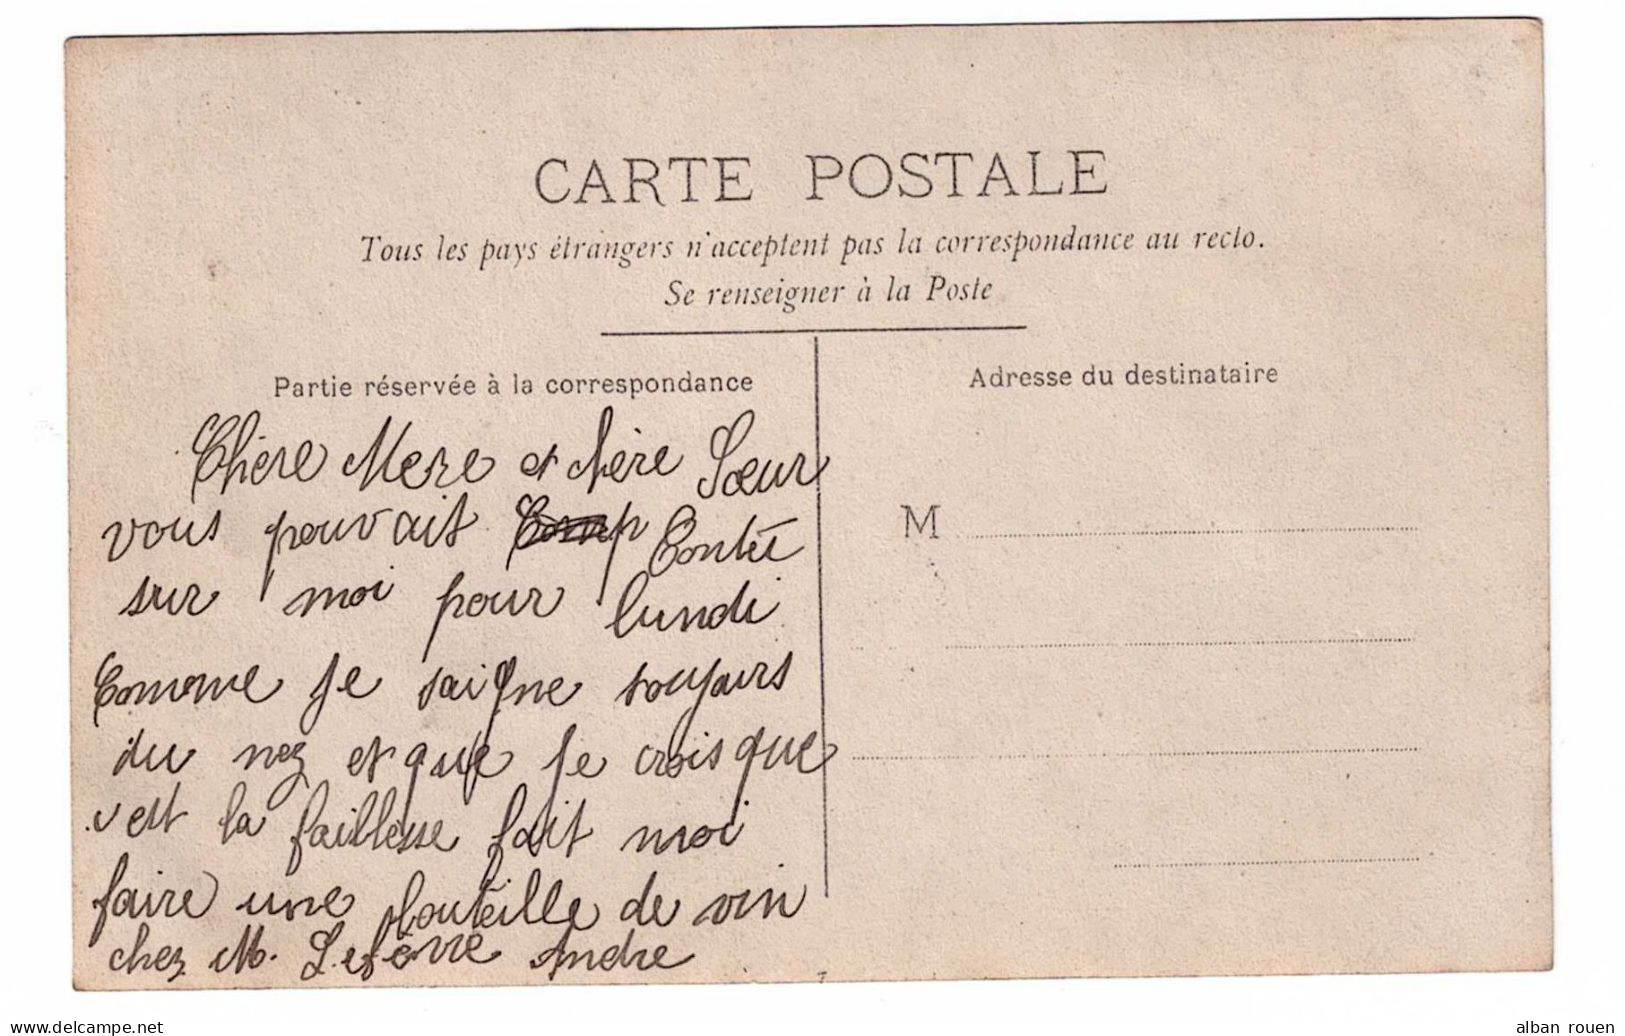 CARTE POSTALE
Tous les pays étrangers n'acceptent pas la correspondance au recto.
Se renseigner à la Poste
Partie réservée à la correspondance
Adresse du destinataire
M
Chère Mere et chère Sœur
vous pouvait Comp Contés
sur moi pour lundi
Comme je saigne toujours
du nez et que je crois que
c'est la faillesse fait moi
faire une bouteille de vin
chez M. Lefèvre Andre
delcampe.net
alban rouen